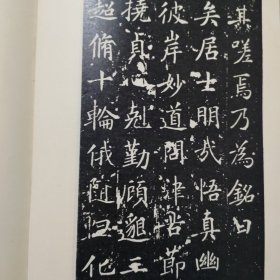 其嗟焉乃為銘曰
矣居士明哉悟真幽
彼岸妙道問津苦節
撓貞心剋勤顧邈三
超脩十輪俄隨化